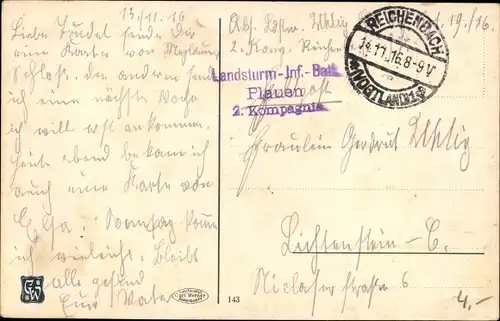 13./11.16
Liebe Trudel sende dir
eine Karte von Mylau
Schloß, die andern sende
ich eine nächste Woche
ich will erst ankommen.
Heute abend bekam ich
auch eine Karte von
Elsa. Sonntag komme
ich vieleicht. Bleibt
alle gesund
Euer Vater
Abs. Ldstm. Uhlig
2. Komp.
19./16.
REICHENBACH
14.11.16.8-9V
(VOGTLAND)1
Landsturm-Inf.-Batl.
Plauen
2. Kompagnie
Fräulein Gertrud Uhlig
Lichtenstein-C.
Niclaser straße 6
143
4,-